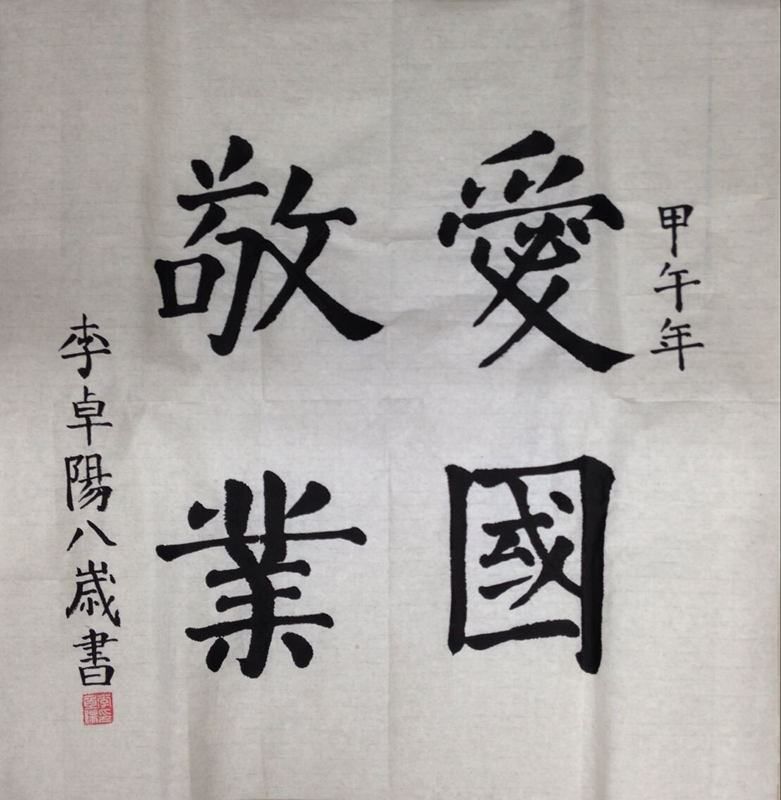 甲午年
愛國
敬業
李卓陽八歲書